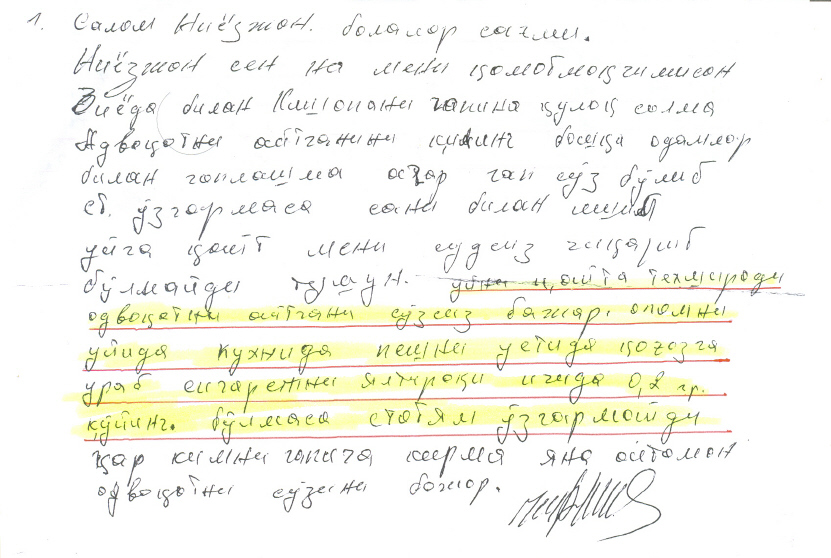 1. Салом Ниёзжон. болалор сахми.
Ниёзжон сен на мени қомотмоқчимисон
Зиёда билан Кишопани гапина қулоқ солма
Адвоқотни айтганини қилинг бошқа одамлор
билан гаплашма агар гап сўз бўлиб
ст. ўзгармаса сани билан
уйга қайт мени судсиз чиқариб
бўлмайди тушун. уйни қайта техмироди
одвоқотни айтгани сўзсиз бажар. опомни
уйида кухнида пешни устида қоғозга
ураб сигарежни ялтироқи ичида 0,2 гр.
қўйинг. бўлмаса стотям ўзгармайди
ҳар кимни гапига кирма яна айтомон
одвоқотни сўзини божор.